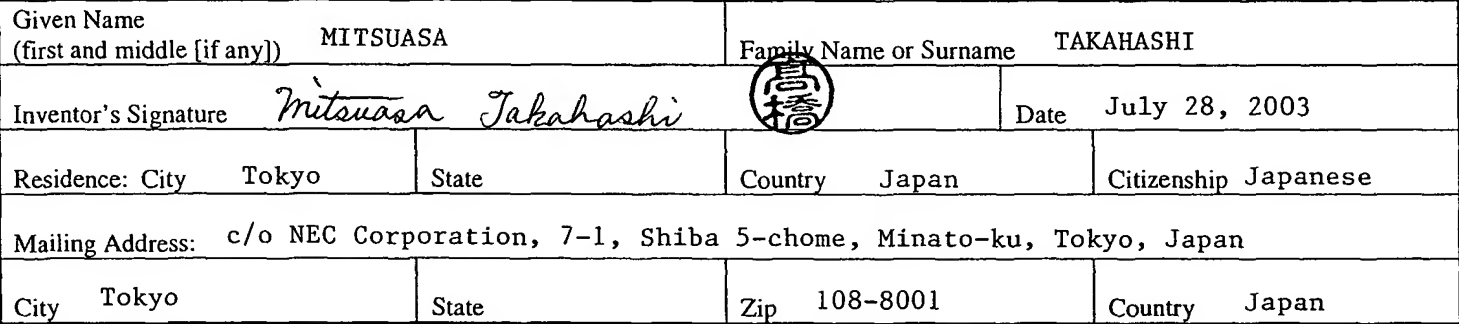 Given Name
(first and middle [if any]) MITSUASA Family Name or Surname TAKAHASHI
Inventor's Signature Mitsuasa Takahashi 高橋 Date July 28, 2003
Residence: City Tokyo State Country Japan Citizenship Japanese
Mailing Address: c/o NEC Corporation, 7-1, Shiba 5-chome, Minato-ku, Tokyo, Japan
City Tokyo State Zip 108-8001 Country Japan